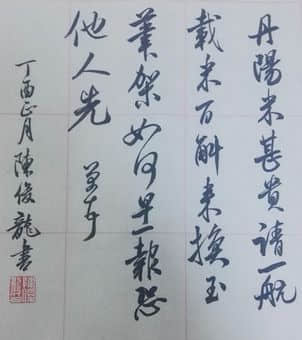 丹陽米甚貴請一航
載米百斛來換玉
筆架如何早一報恐
他人先 芾頓首
丁酉正月陳俊龍書